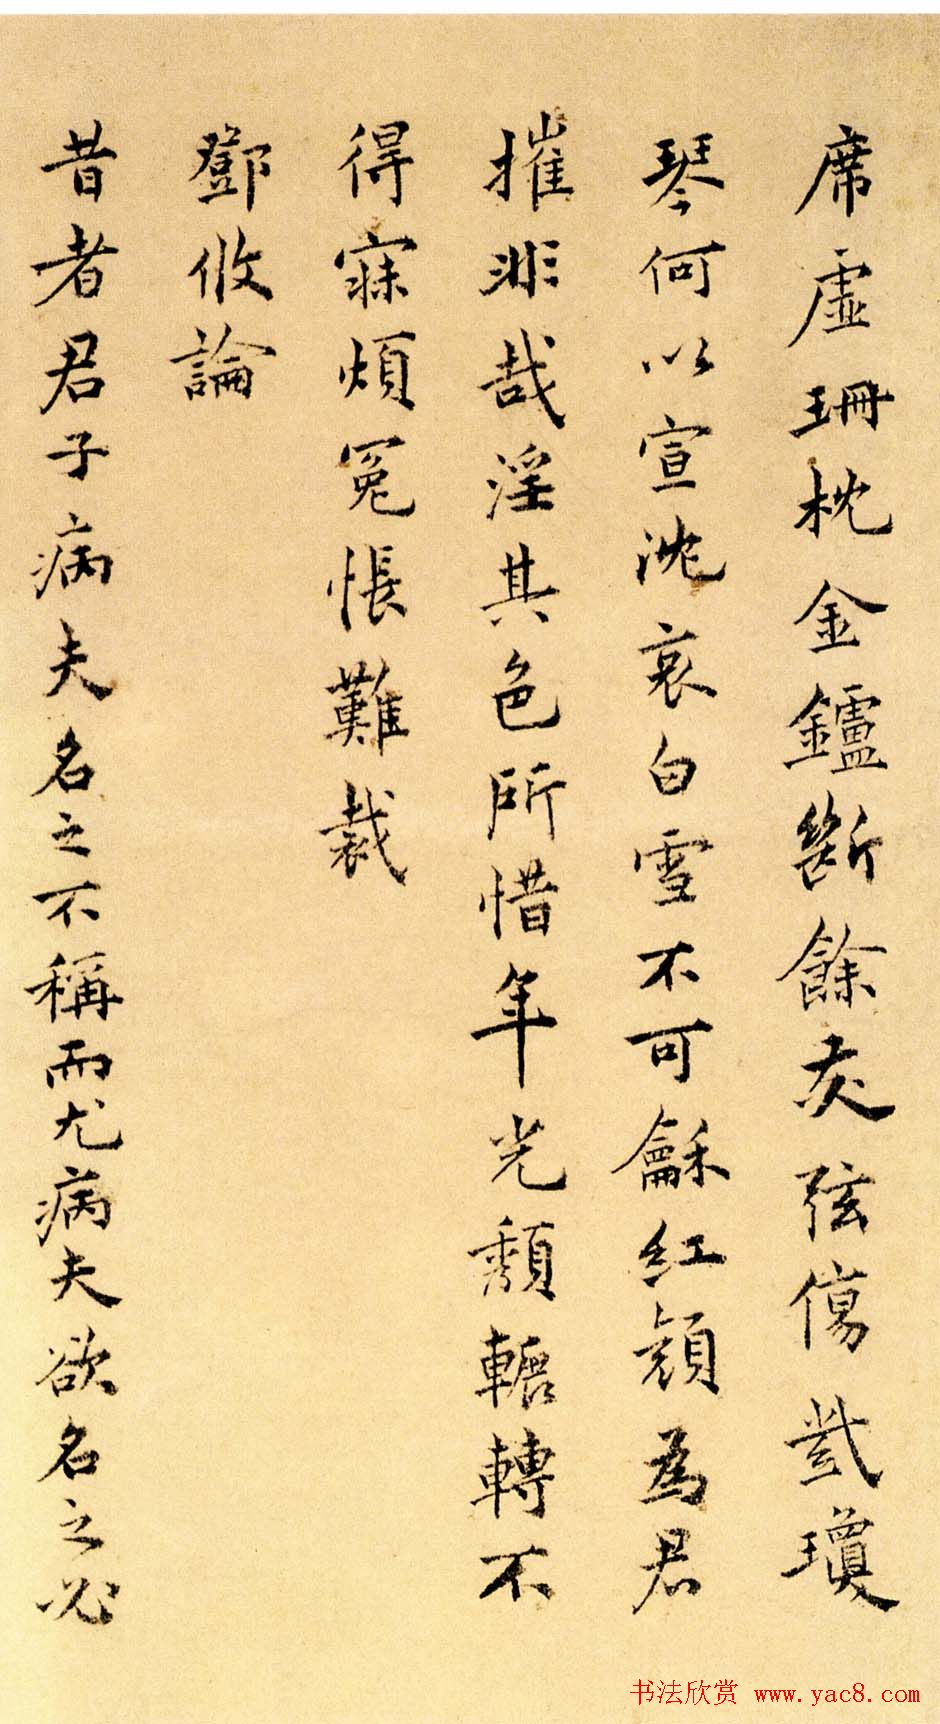 席虛珊枕金鑪斷餘灰弦傷瓊
琴何以宣沈哀白雪不可龢紅顏為君
摧非哉淫其色所惜年光頹轉不
得寐煩冤悵難裁
鄧攸論
昔者君子病夫名之不稱而尤病夫欲名之必
书法欣赏 www.yac8.com